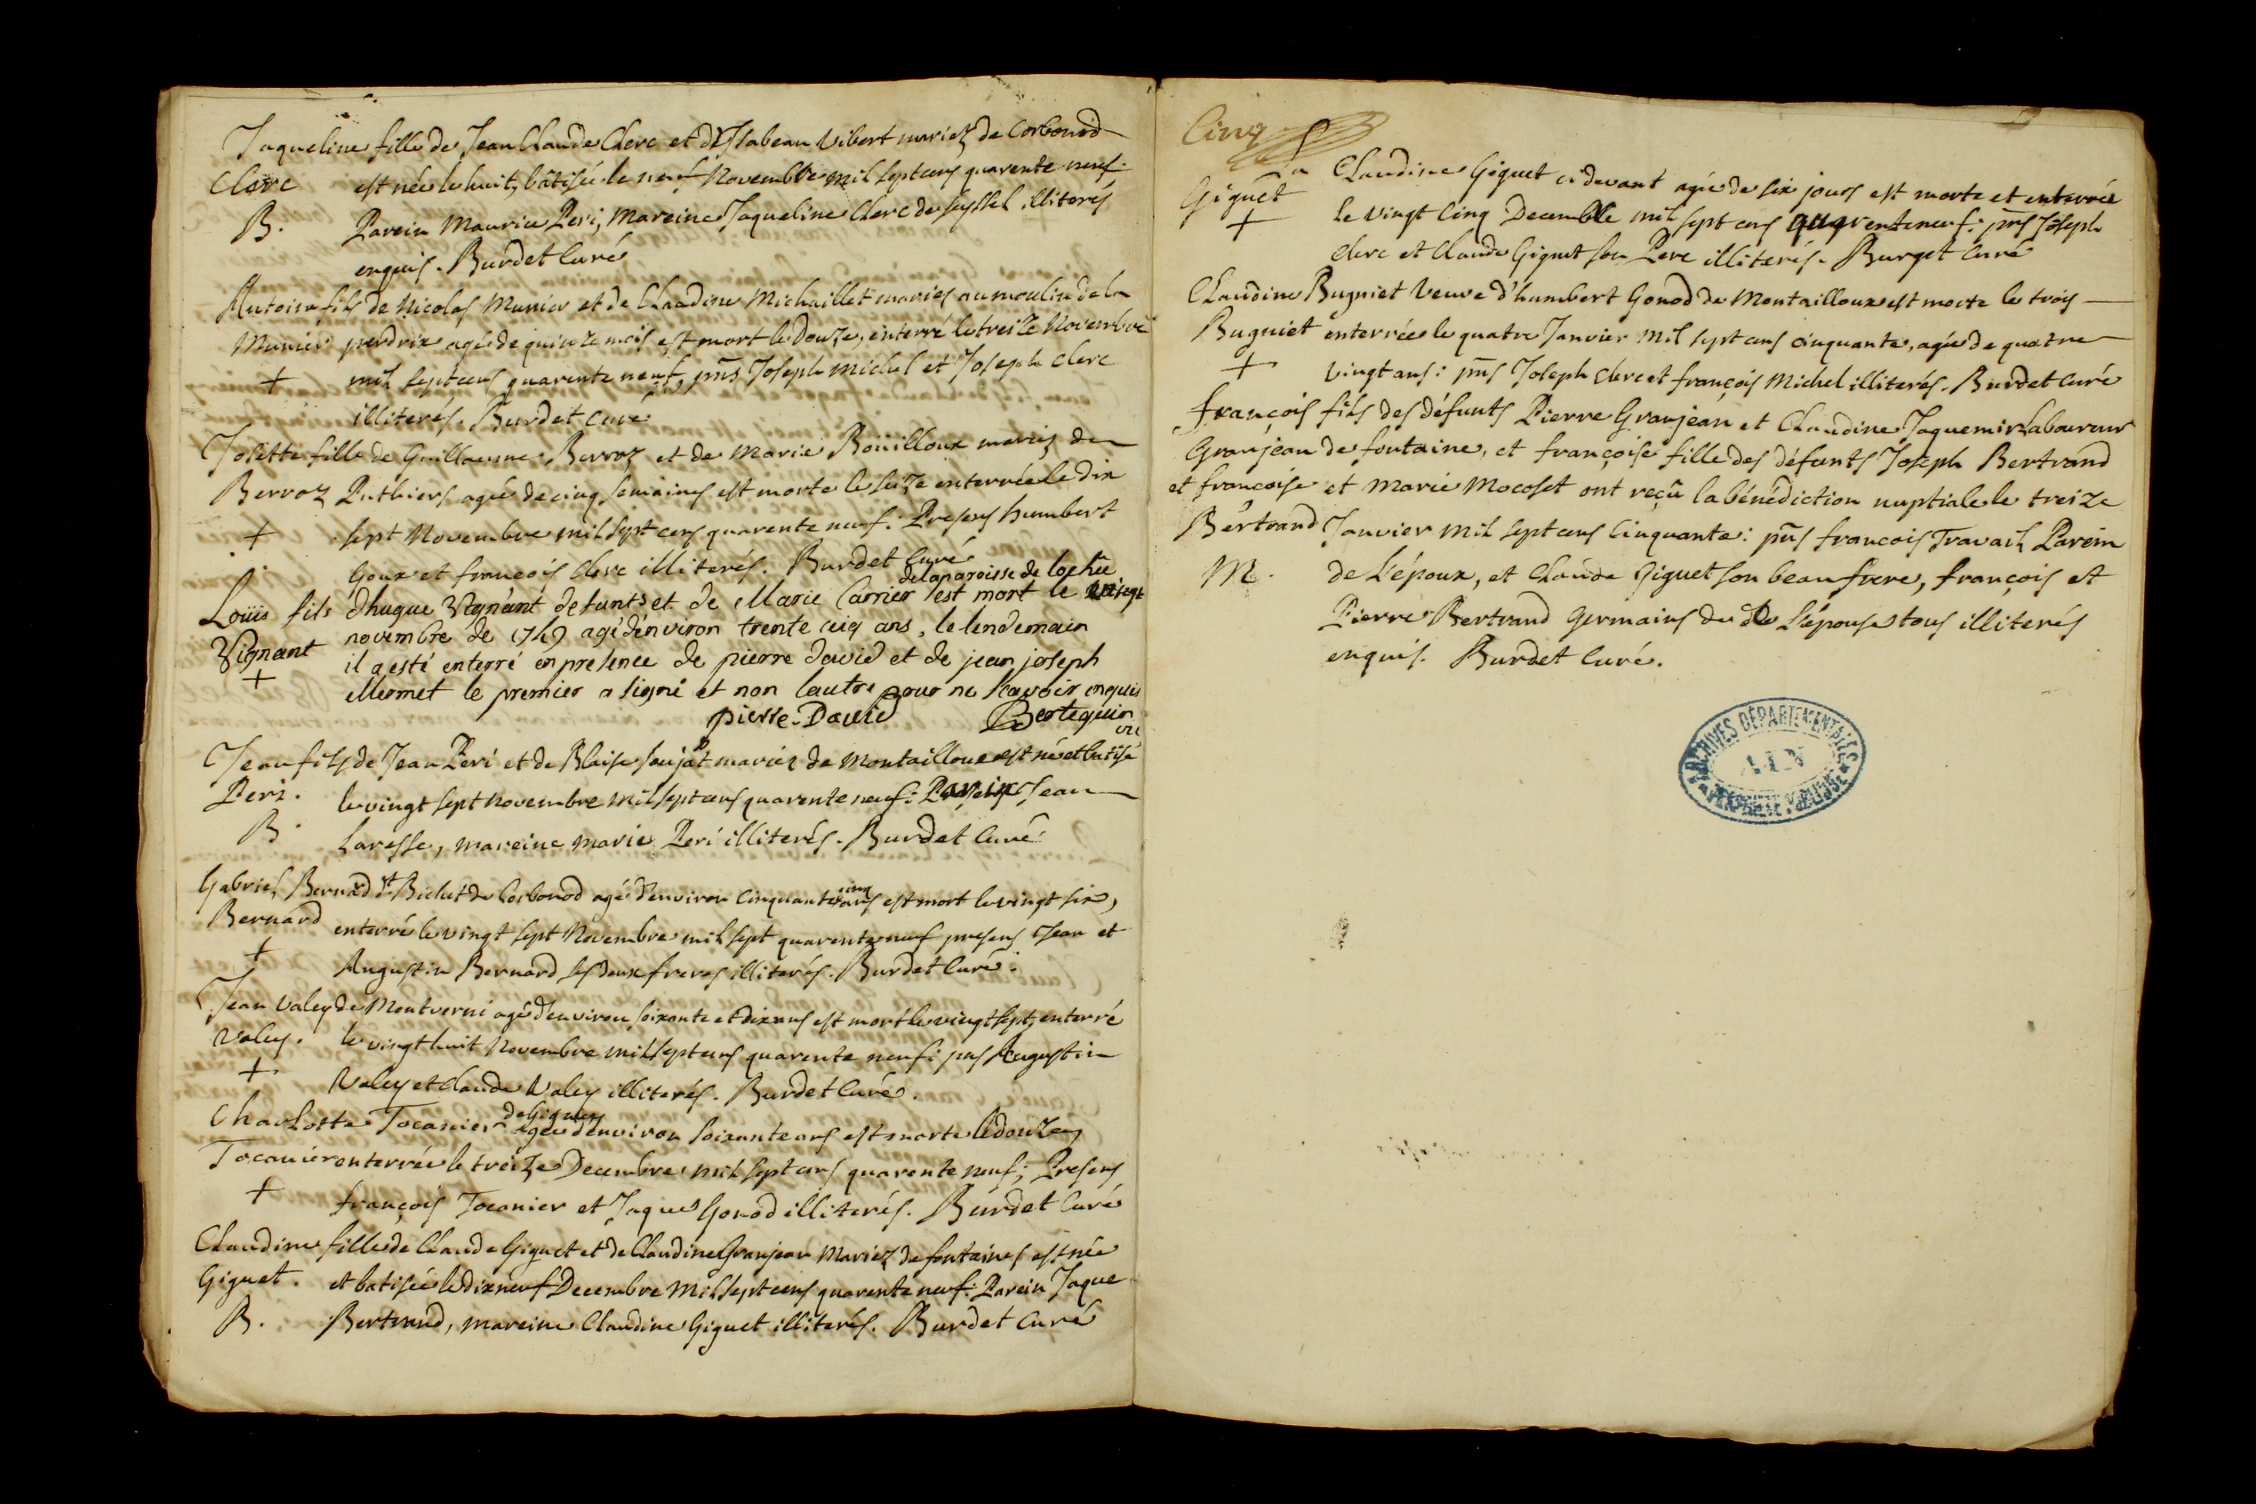 Jaqueline fille de Jean Claude Clerc et d'Isabeau Vibert mariez de Corbonod
Clerc est née le huit, bâtisée le neuf Novembre mil sept cens quarente neuf:
B. Parein Maurice Peri, Mareine Jaqueline Clerc de Seyssel illiterés
enquis. Burdet Curé
Antoine fils de Nicolas Munier et de Claudine Michaillet mariés au moulin de la
Munier perdrix agé de quinze mois est mort le Douze, enterré le treize Novembre
+ mil sept cens quarente neuf, pns Joseph Michel et Joseph Clerc
illiterés. Burdet Curé
Josette fille de Guillaume Berroz et de Marie Boüilloux mariez de
Berroz Puthiers agée de cinq semaines est morte le seize enterrée le dix
+ sept Novembre mil sept cens quarente neuf: Presens humbert
Goux et francois Clerc illiterés. Burdet Curé
de la paroisse de lochie
Loüis fils d'hugue Vignant defunts et de Marie Carrier est mort le
Vignant novembre de 1749 agé d'environ trente cinq ans, le lendemain
+ il a esté enterré en presence de pierre david et de jean joseph
Mermet le premier a signé et non lautre pour ne scavoir enquis
pierre David Bertequin
Jean fils de Jean Peri et de Blaise Saujat mariez de Montailloux est né et batisé
Peri. le vingt sept Novembre mil sept cens quarente neuf: Parein Jean
B. Laresse, mareine Marie Peri illiterés. Burdet Curé.
Gabriel Bernard dt Bichet de Corbonod agé d'environ cinquante cinq ans est mort le vingt six,
Bernard enterré le vingt sept Novembre mil sept quarente neuf presens Jean et
+ Augustin Bernard ses deux freres illiterés. Burdet Curé.
Jean Valey de Montverni agé d'environ soixante et dix ans est mort le vingt sept, enterré
Valey. le vingt huit Novembre mil sept cens quarente neuf: pns Augustin
+ Valey et Claude Valey illiterés. Burdet Curé.
de Gignez
Charlotte Tocanier agée d'environ soixante ans est morte le douze,
Tocanier enterrée le treize Decembre mil sept cens quarente neuf; Presens
+ françois Tocanier et Jaque Gonod illiterés. Burdet Curé
Claudine fille de Claude Giguet et de Claudine Granjean Mariez de fontaines est née
Giguet. et batisée le dix neuf Decembre mil sept cens quarente neuf: Parein Jaque
B. Bertrand, mareine Claudine Giguet illiterés. Burdet Curé
Cinq
Claudine Giguet ci devant agée de six jours est morte et enterrée
Giguet le vingt cinq Decembre mil sept cens quarente neuf: pns Joseph
+ Clerc et Claude Giguet son Pere illiterés. Burdet Curé
Claudine Buguiet Veuve d'humbert Gonod de Montailloux est morte le trois
Buguiet enterrée le quatre Janvier mil sept cens cinquante, agée de quatre
+ vingt ans: pns Joseph Clerc et françois Michel illiterés. Burdet Curé
françois fils des défunts Pierre Granjean et Claudine Jaquemir Laboureur
Granjean de fontaine, et françoise fille des défunts Joseph Bertrand
et francoise et Marie Mocoset ont reçû la bénédiction nuptiale le treize
Bertrand Janvier mil sept cens Cinquante: pns francois Travail Parein
M. de l'époux, et Claude Giguet son beau frere, françois et
Pierre Bertrand germains de de l'épouse tous illiterés
enquis. Burdet Curé.
ARCHIVES DÉPARTEMENTALES
AIN